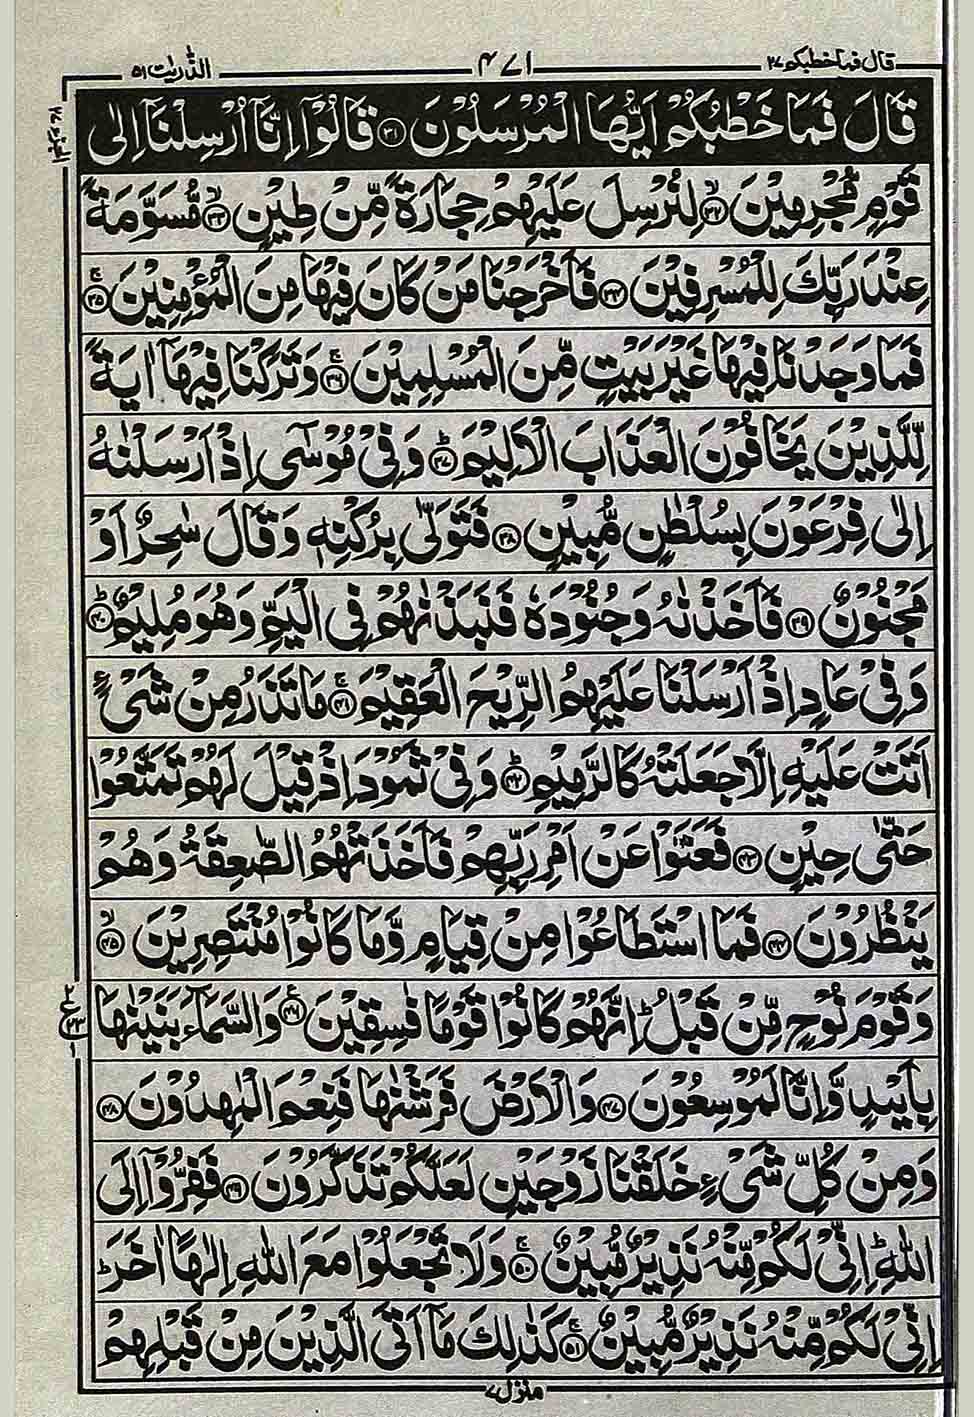 قال فما خطبكم ٢٧
٤٧١
الذّٰریٰت ٥١
قَالَ فَمَا خَطْبُكُمْ اَیُّهَا الْمُرْسَلُوْنَ ﴿٣١﴾ قَالُوْۤا اِنَّاۤ اُرْسِلْنَاۤ اِلٰى
قَوْمٍ مُّجْرِمِیْنَ ﴿٣٢﴾ۙ لِنُرْسِلَ عَلَیْهِمْ حِجَارَةً مِّنْ طِیْنٍ ﴿٣٣﴾ۙ مُّسَوَّمَةً
عِنْدَ رَبِّكَ لِلْمُسْرِفِیْنَ ﴿٣٤﴾ فَاَخْرَجْنَا مَنْ كَانَ فِیْهَا مِنَ الْمُؤْمِنِیْنَ ﴿٣٥﴾ۚ
فَمَا وَجَدْنَا فِیْهَا غَیْرَ بَیْتٍ مِّنَ الْمُسْلِمِیْنَ ﴿٣٦﴾ۚ وَتَرَكْنَا فِیْهَاۤ اٰیَةً
لِّلَّذِیْنَ یَخَافُوْنَ الْعَذَابَ الْاَلِیْمَ ﴿٣٧﴾ؕ وَفِیْ مُوْسٰۤى اِذْ اَرْسَلْنٰهُ
اِلٰى فِرْعَوْنَ بِسُلْطٰنٍ مُّبِیْنٍ ﴿٣٨﴾ فَتَوَلّٰى بِرُكْنِهٖ وَقَالَ سٰحِرٌ اَوْ
مَجْنُوْنٌ ﴿٣٩﴾ فَاَخَذْنٰهُ وَجُنُوْدَهٗ فَنَبَذْنٰهُمْ فِی الْیَمِّ وَهُوَ مُلِیْمٌ ﴿٤٠﴾ؕ
وَفِیْ عَادٍ اِذْ اَرْسَلْنَا عَلَیْهِمُ الرِّیْحَ الْعَقِیْمَ ﴿٤١﴾ۚ مَا تَذَرُ مِنْ شَیْءٍ
اَتَتْ عَلَیْهِ اِلَّا جَعَلَتْهُ كَالرَّمِیْمِ ﴿٤٢﴾ؕ وَفِیْ ثَمُوْدَ اِذْ قِیْلَ لَهُمْ تَمَتَّعُوْا
حَتّٰى حِیْنٍ ﴿٤٣﴾ فَعَتَوْا عَنْ اَمْرِ رَبِّهِمْ فَاَخَذَتْهُمُ الصّٰعِقَةُ وَهُمْ
یَنْظُرُوْنَ ﴿٤٤﴾ فَمَا اسْتَطَاعُوْا مِنْ قِیَامٍ وَّمَا كَانُوْا مُنْتَصِرِیْنَ ﴿٤٥﴾ۙ
وَقَوْمَ نُوْحٍ مِّنْ قَبْلُ ؕ اِنَّهُمْ كَانُوْا قَوْمًا فٰسِقِیْنَ ﴿٤٦﴾ وَالسَّمَآءَ بَنَیْنٰهَا
بِاَیْىدٍ وَّاِنَّا لَمُوْسِعُوْنَ ﴿٤٧﴾ وَالْاَرْضَ فَرَشْنٰهَا فَنِعْمَ الْمٰهِدُوْنَ ﴿٤٨﴾
وَمِنْ كُلِّ شَیْءٍ خَلَقْنَا زَوْجَیْنِ لَعَلَّكُمْ تَذَكَّرُوْنَ ﴿٤٩﴾ فَفِرُّوْۤا اِلَى
اللّٰهِ ؕ اِنِّیْ لَكُمْ مِّنْهُ نَذِیْرٌ مُّبِیْنٌ ﴿٥٠﴾ۚ وَلَا تَجْعَلُوْا مَعَ اللّٰهِ اِلٰهًا اٰخَرَ ؕ
اِنِّیْ لَكُمْ مِّنْهُ نَذِیْرٌ مُّبِیْنٌ ﴿٥١﴾ۚ كَذٰلِكَ مَاۤ اَتَى الَّذِیْنَ مِنْ قَبْلِهِمْ
منزل ٧